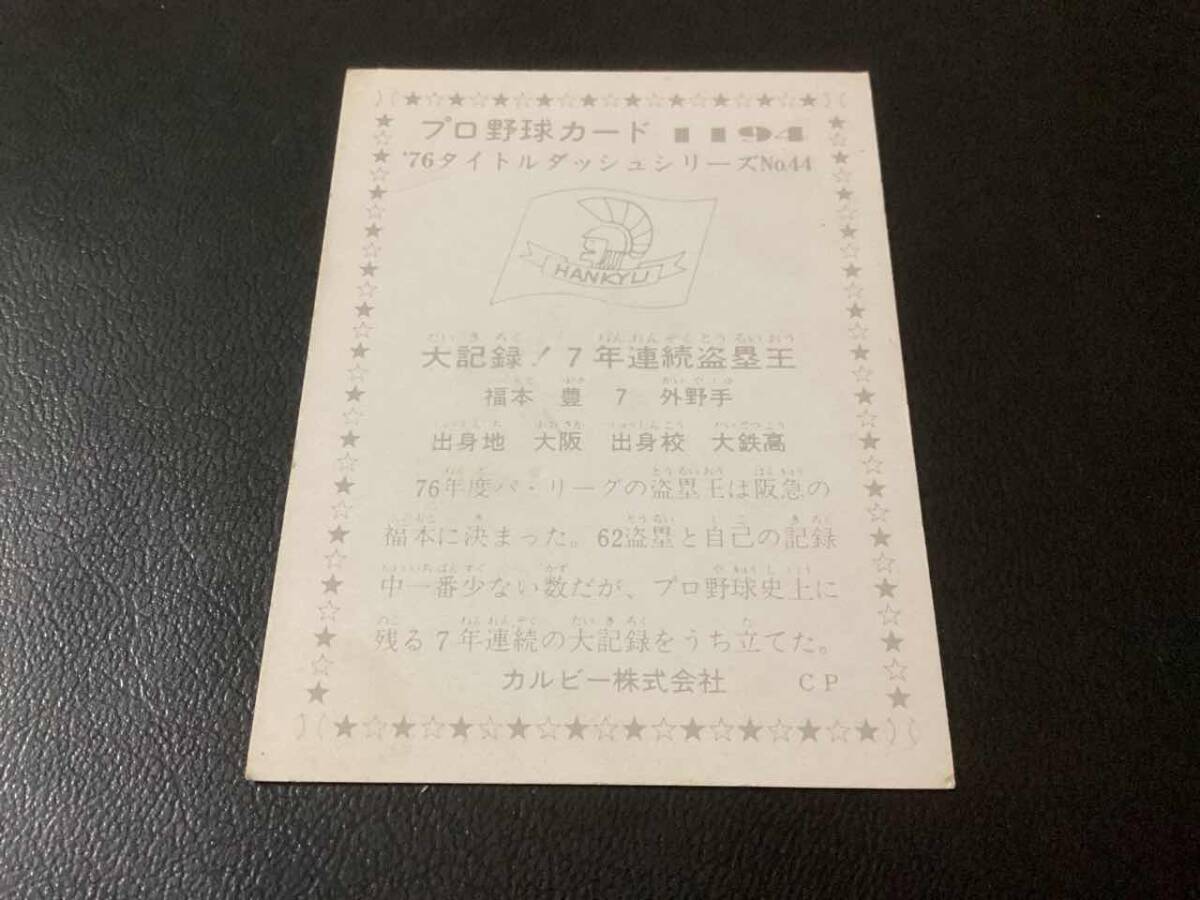 プロ野球カード 1194
'76タイトルダッシュシリーズNo.44
HANKYU
大記録！7年連続盗塁王
福本 豊 7 外野手
出身地 大阪 出身校 大鉄高
76年度パ・リーグの盗塁王は阪急の
福本に決まった。62盗塁と自己の記録
中一番少ない数だが、プロ野球史上に
残る7年連続の大記録をうち立てた。
カルビー株式会社 CP